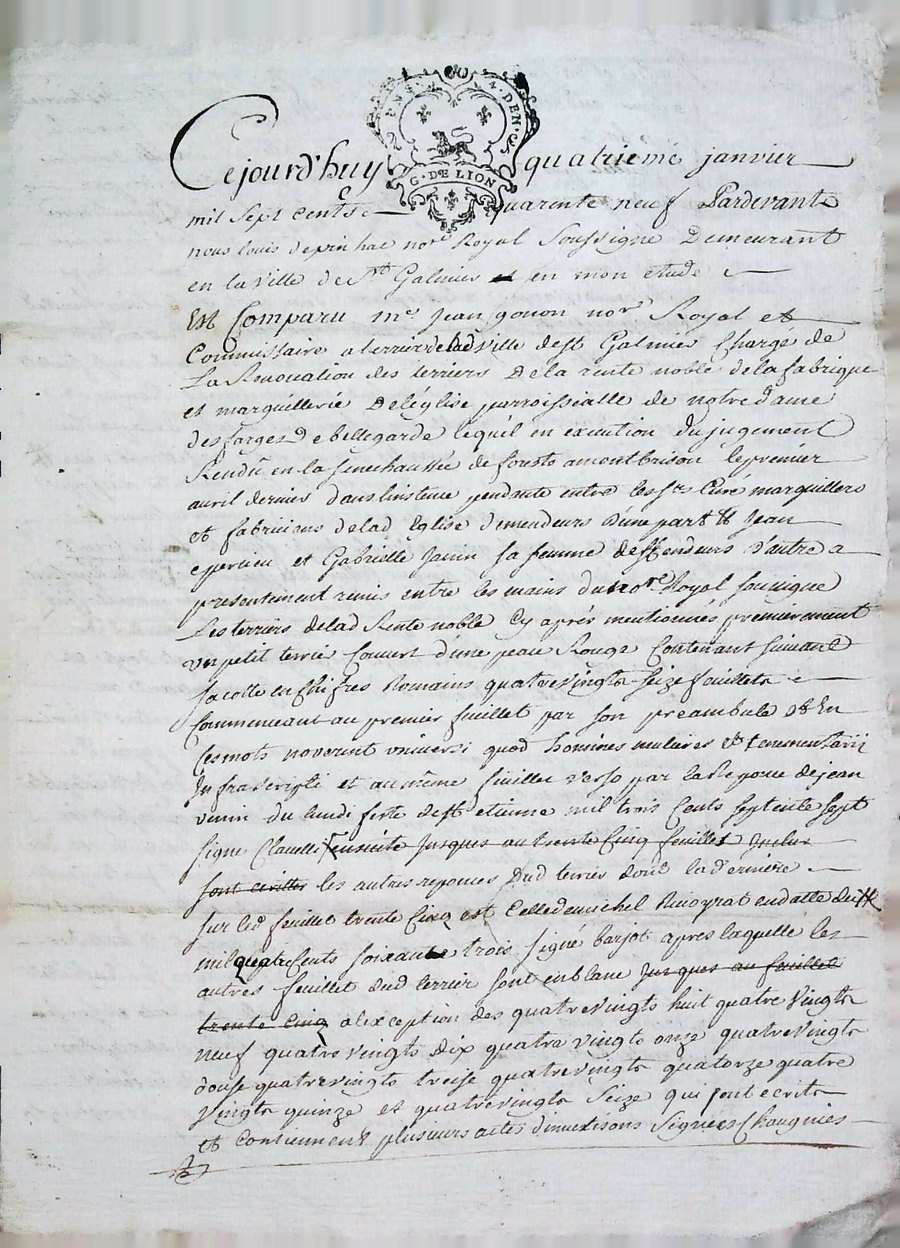 G. DE LION
Cejourd'huy quatrieme janvier
mil sept cents quarente neuf Pardevant
nous louis depinhac nore Royal Soussigne Demeurant
en la ville de St Galmier et en mon etude
Est Comparu me jean gonon nore Royal et
Commissaire a terrier de lad ville de st Galmier Chargé de
La Renovation des terriers De la rente noble de la fabrique
et marguillerie De l'église parroissialle de notre dame
des farges De bellegarde lequil en execution du jugement
Rendu en la senechaussée de forests a montbrison le premier
avril dernier dans linstence pendante entre les srs Curé marguillers
et fabriciens de lad Eglise demendeurs d'une part & Jean
epercieu et Gabrielle Janin sa femme deffendeurs d'autre a
presentement remis entre les mains du nore Royal soussigne
Les terriers de lad Rente noble Cy aprés mentionnés premierement
un petit terrié Couvert d'une peau Rouge Contenant suivant
sa cotte en Chifres Romains quatrevingts seize feuillets
Commenceant au premier feuillet par son preambule et En
Ces mots noverint universi quod homines et tenementarii
Infrascripti et au même feuillet verso par la Reponce de jean
du lundi feste de st etienne mil trois Cents septente sept
signé ensuite jusques au trente Cinq feuillet
sont les autres reponces dud terrier dont la derniere
sur led feuillet trente Cinq est Celle de michel en datte du
mil quatre Cents soixante trois signé barjot apres laquelle les
autres feuillet dud terrier sont en blanc jusques au feuillet
trente cinq a lexception des quatrevingts huit quatre vingts
neuf quatre vingts dix quatre vingts onze quatrevingts
douse quatrevingts treise quatrevingts quatorze quatre
vingts quinze et quatrevingts seize qui sont ecrits
et contiennent plusieurs actes d'inuestisons Signées Chaugnies